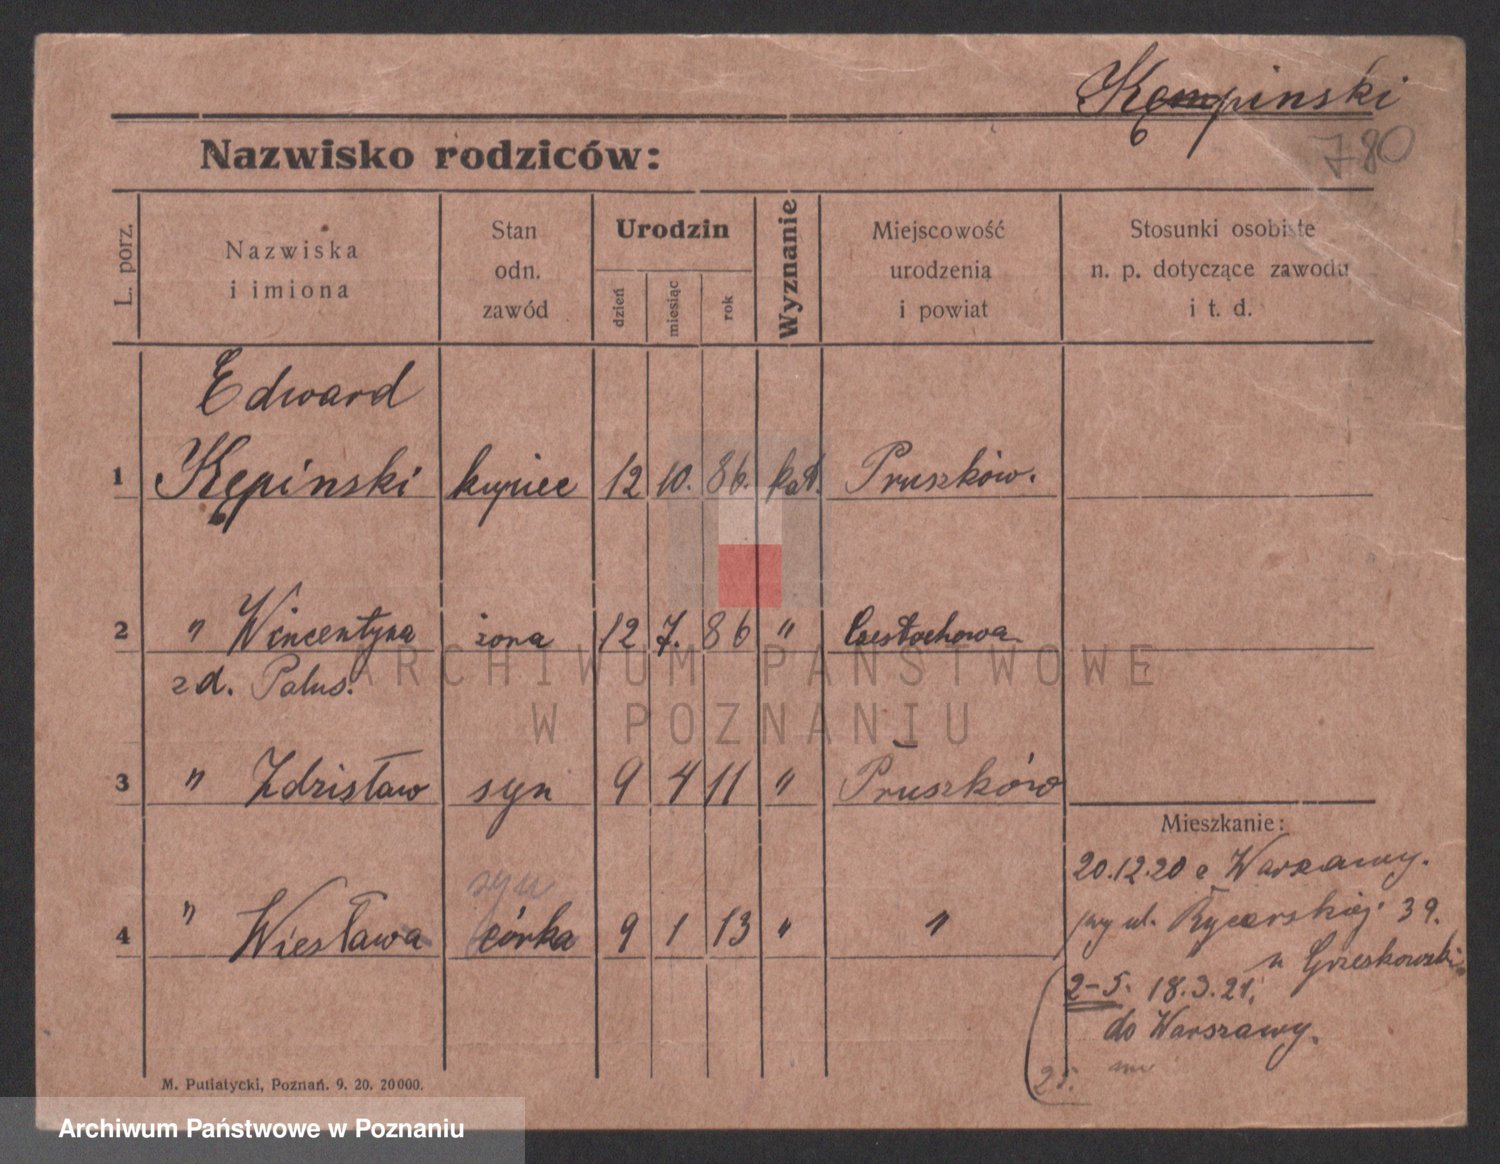 Kępinski
780
Nazwisko rodziców:
L. porz.
Nazwiska
i imiona
Stan
odn.
zawód
Urodzin
dzień
miesiąc
rok
Wyznanie
Miejscowość
urodzenia
i powiat
Stosunki osobiste
n. p. dotyczące zawodu
i t. d.
Edward
1 Kępinski kupiec 12 10. 86. kat. Pruszków.
2 " Wincentyna żona 12 7. 86 " Czestochowa
z d. Palus.
3 " Zdzisław syn 9 4 11 " Pruszków
Mieszkanie:
20.12.20 z Warszawy.
syn
ul. Rycerskiej 39.
4 " Wiesława córka 9 1 13 " "
u Grzeskowski
2-5. 18.3.21.
do Warszawy.
25.
M. Putiatycki, Poznań. 9. 20. 20000.
ARCHIWUM PAŃSTWOWE
W POZNANIU
Archiwum Państwowe w Poznaniu